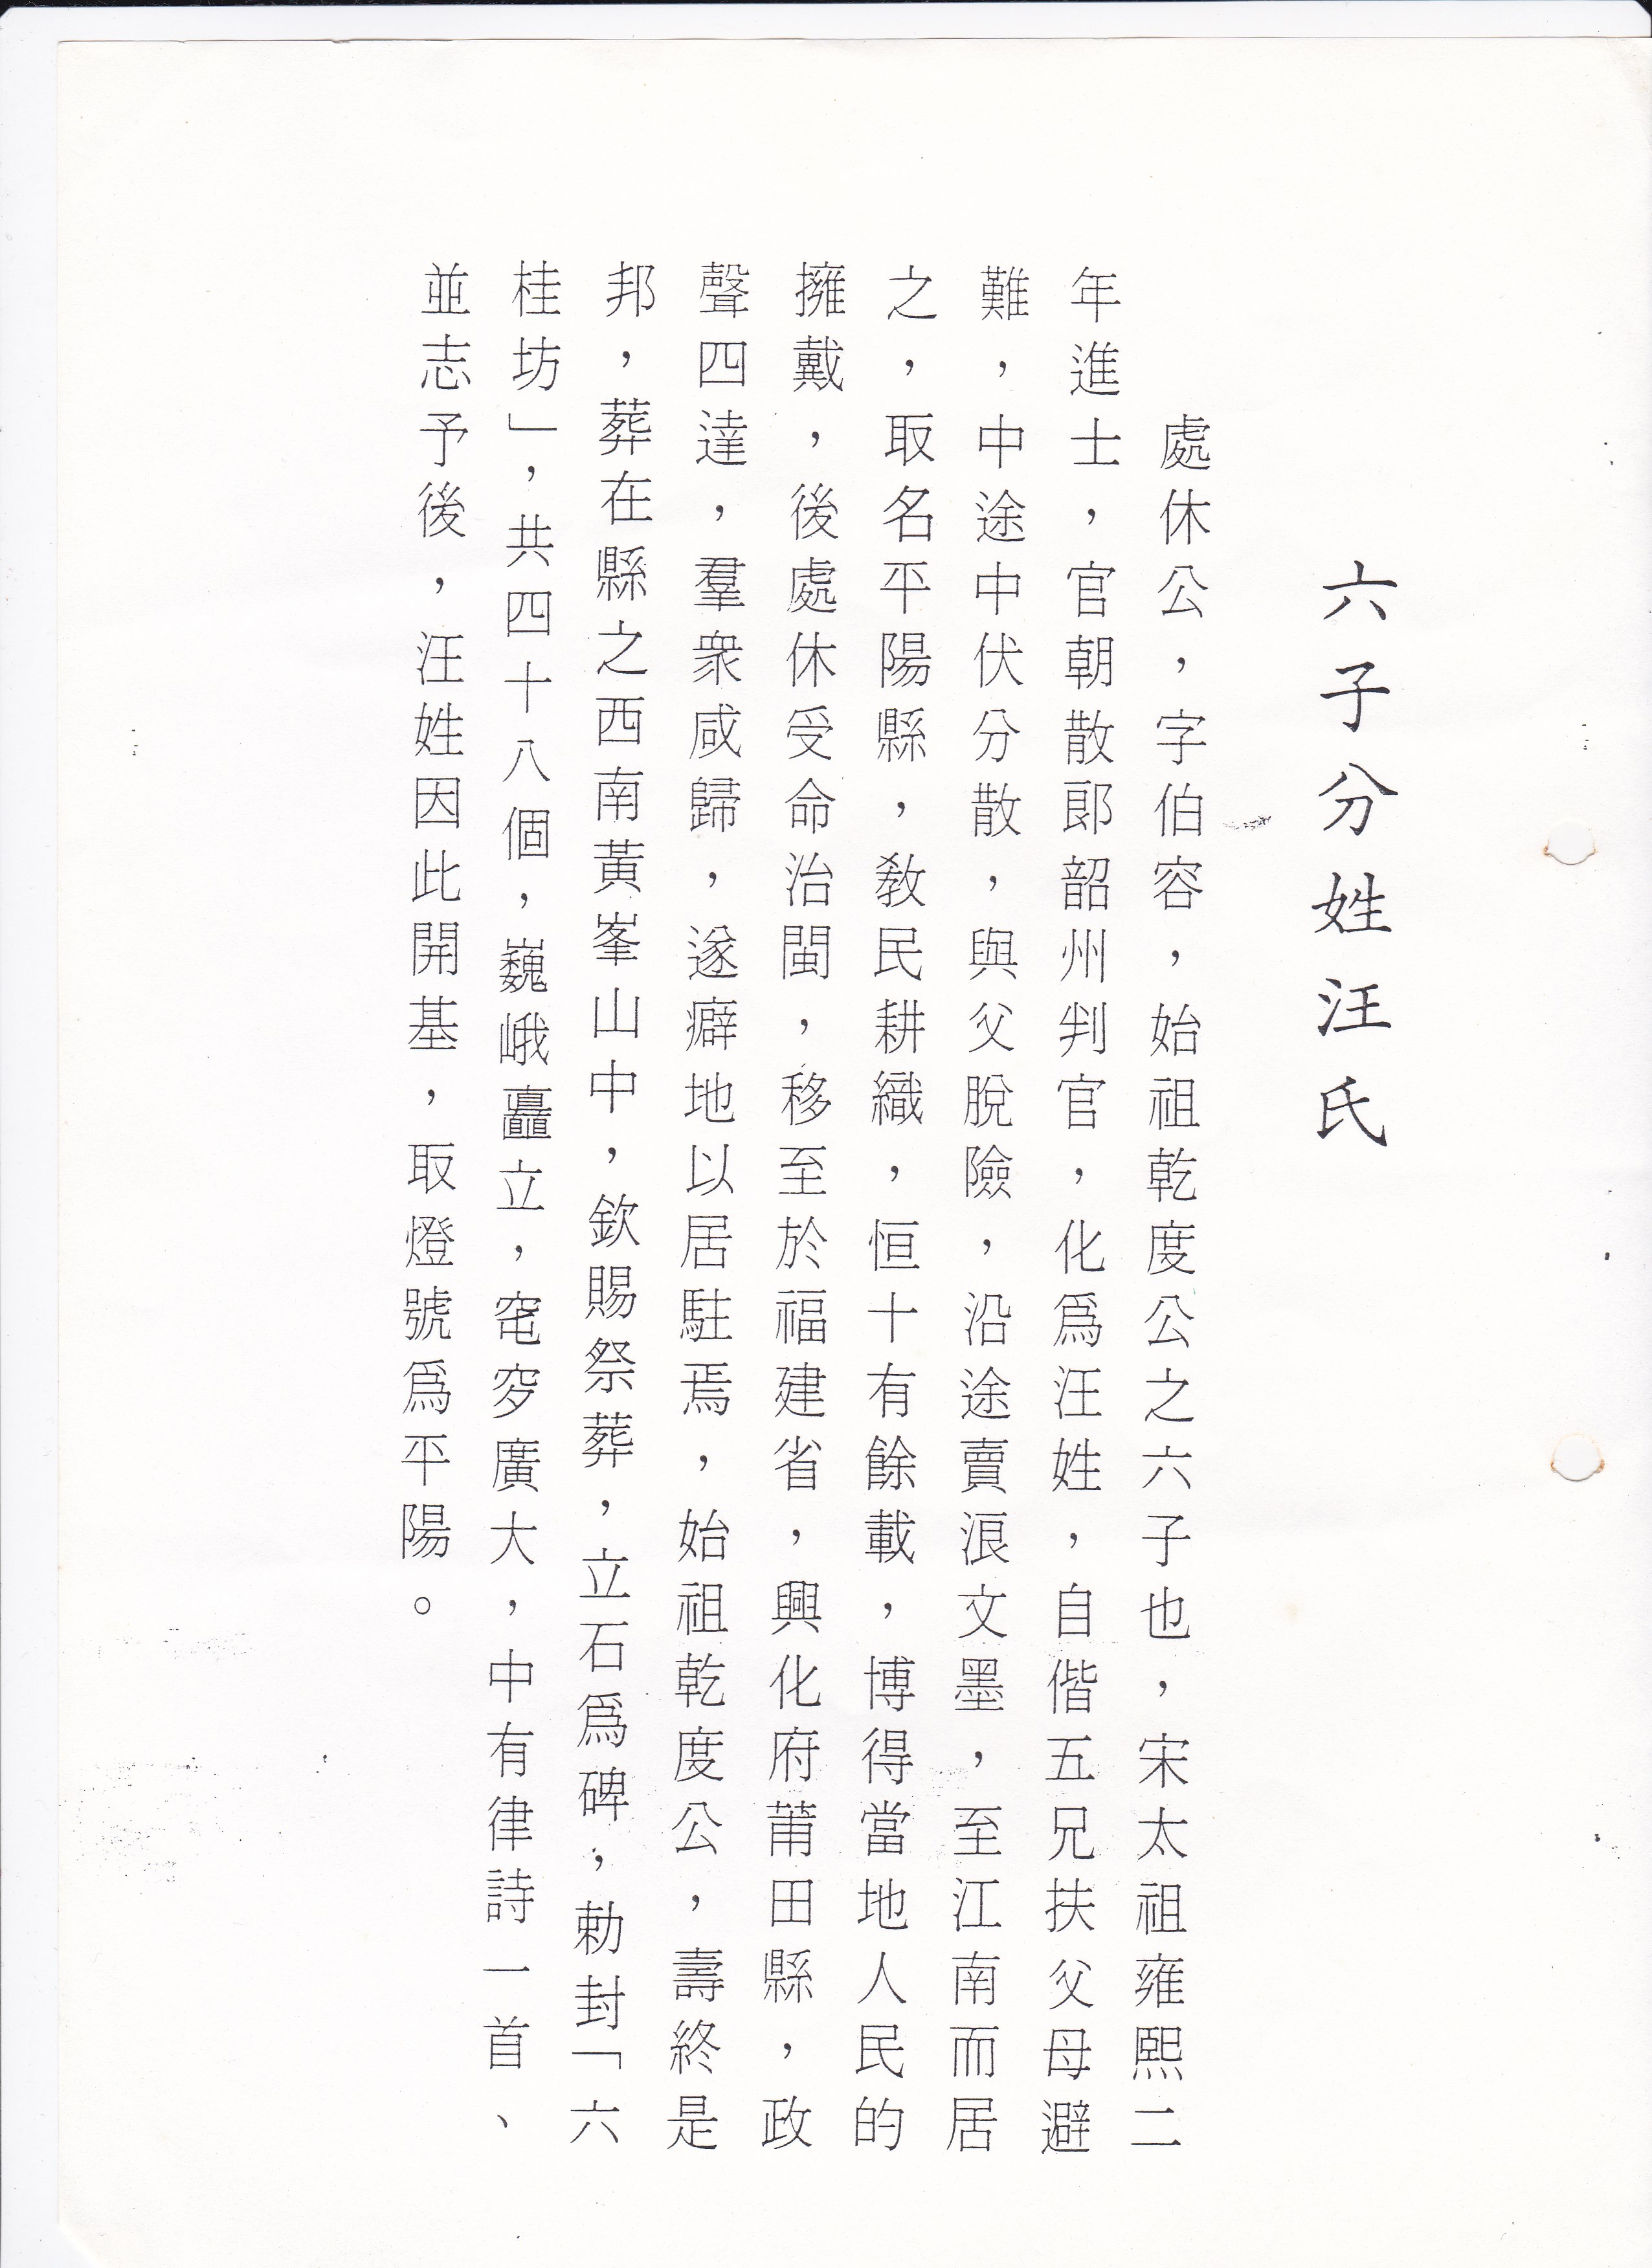 六子分姓汪氏
處休公，字伯容，始祖乾度公之六子也，宋太祖雍熙二
年進士，官朝散郎韶州判官，化爲汪姓，自偕五兄扶父母避
難，中途中伏分散，與父脫險，沿途賣浪文墨，至江南而居
之，取名平陽縣，敎民耕織，恒十有餘載，博得當地人民的
擁戴，後處休受命治閩，移至於福建省，興化府莆田縣，政
聲四達，羣衆咸歸，遂癖地以居駐焉，始祖乾度公，壽終是
邦，葬在縣之西南黃峯山中，欽賜祭葬，立石爲碑，勅封「六
桂坊」，共四十八個，巍峨矗立，窀穸廣大，中有律詩一首、
並志予後，汪姓因此開基，取燈號爲平陽。